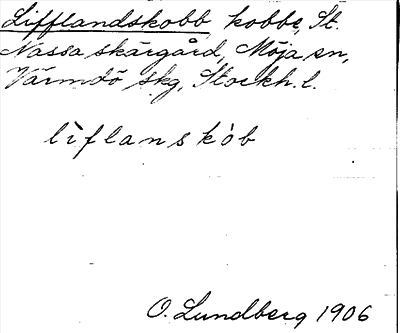 Lifflandskobb, kobbe, St.
Nassa skärgård, Möja sn,
Värmdö skg, Stockh. l.
lìflanskòb
O. Lundberg 1906